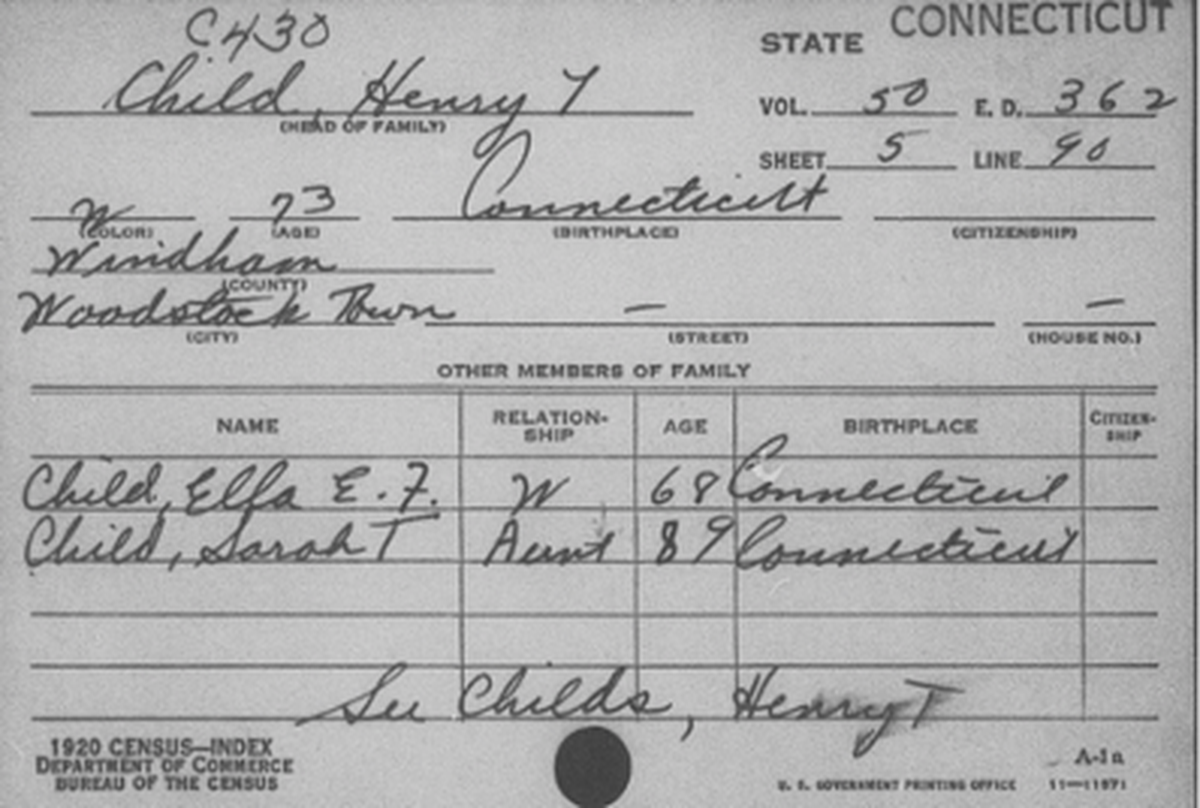 C430
STATE CONNECTICUT
Child, Henry T
(HEAD OF FAMILY)
VOL. 50 E. D. 362
SHEET 5 LINE 90
W 73 Connecticut
(COLOR) (AGE) (BIRTHPLACE) (CITIZENSHIP)
Windham
(COUNTY)
Woodstock Town — —
(CITY) (STREET) (HOUSE NO.)
OTHER MEMBERS OF FAMILY
NAME RELATION-SHIP AGE BIRTHPLACE CITIZEN-SHIP
Child, Ella E. F. W 68 Connecticut
Child, Sarah T Aunt 89 Connecticut
See Childs, Henry T
1920 CENSUS—INDEX
DEPARTMENT OF COMMERCE
BUREAU OF THE CENSUS
A-1a
U. S. GOVERNMENT PRINTING OFFICE 11—11571